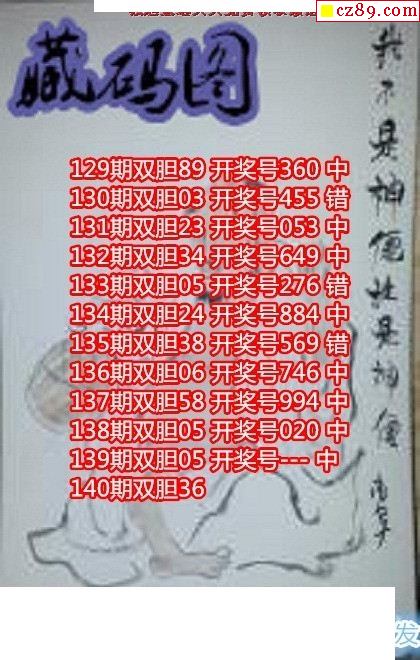 cz89.com
藏码图
129期双胆89 开奖号360 中
130期双胆03 开奖号455 错
131期双胆23 开奖号053 中
132期双胆34 开奖号649 中
133期双胆05 开奖号276 错
134期双胆24 开奖号884 中
135期双胆38 开奖号569 错
136期双胆06 开奖号746 中
137期双胆58 开奖号994 中
138期双胆05 开奖号020 中
139期双胆05 开奖号--- 中
140期双胆36
我不是神仙
是神仙
发